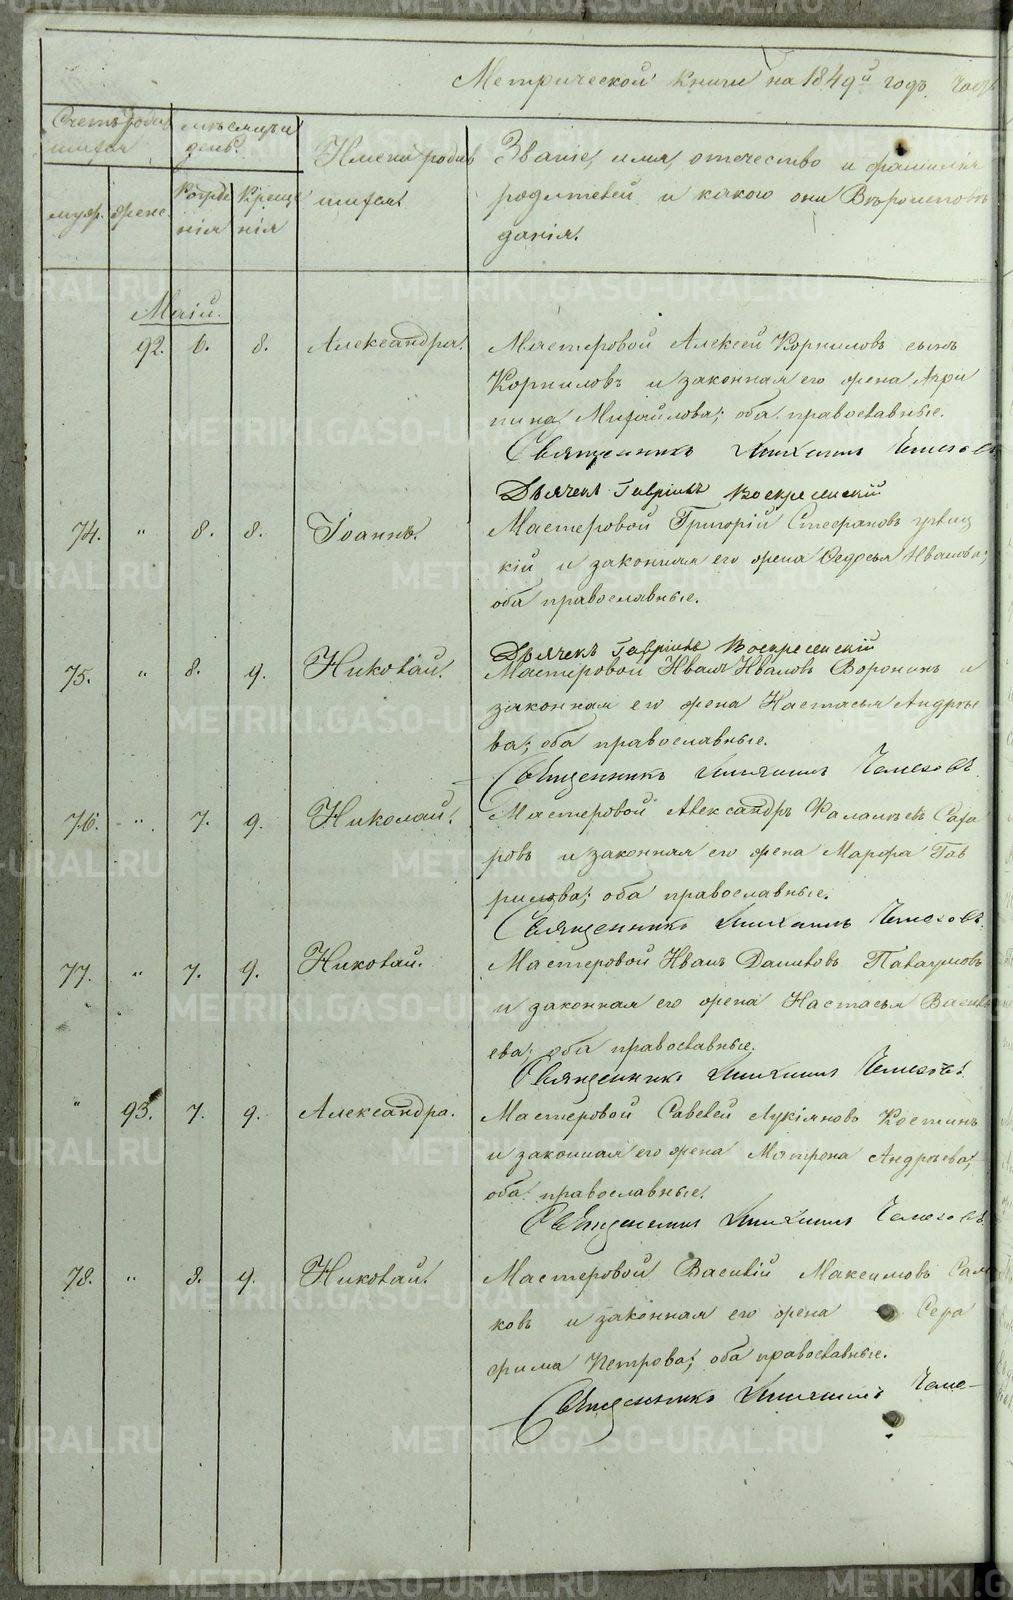 Метрической книги на 1849й годъ. Часть
Счетъ родив
шихся
мѣсяцъ и
день.
Имена родив
шихся.
Званіе, имя, отчество и фамилія
родителей и какого они Вѣроисповѣ
данія.
муж. жене.
Рожде
нія
Креще
нія
Маій.
92. 6. 8. Александра. Мастеровой Алексей Корниловъ сынъ
Корниловъ и законная его жена Агри
пина Михайлова; оба православные.
Священникъ
Дьячекъ Гавріилъ Воскресенскій
74. " 8. 8. Іоаннъ. Мастеровой Григорій Стефановъ
кій и законная его жена Федосья Иванова;
оба православные.
Дьячекъ Гавріилъ Воскресенскій
75. " 8. 9. Николай. Мастеровой Иванъ Ивановъ Воронинъ и
законная его жена Настасья Андрѣе
ва; оба православные.
Священникъ
76. " 7. 9. Николай. Мастеровой Александръ Фалалѣевъ Саха
ровъ и законная его жена Марфа Гав
рилова; оба православные.
Священникъ
77. " 7. 9. Николай. Мастеровой Иванъ Даниловъ
и законная его жена Настасья Василь
ева; оба православные.
Священникъ
" 93. 7. 9. Александра. Мастеровой Савелей Лукіяновъ Костинъ
и законная его жена Матрона Андрѣева;
оба православные.
Священникъ
78. " 8. 9. Николай. Мастеровой Василій Максимовъ
ковъ и законная его жена Сера
фима Петрова; оба православные.
Священникъ
METRIKI.GASO-URAL.RU